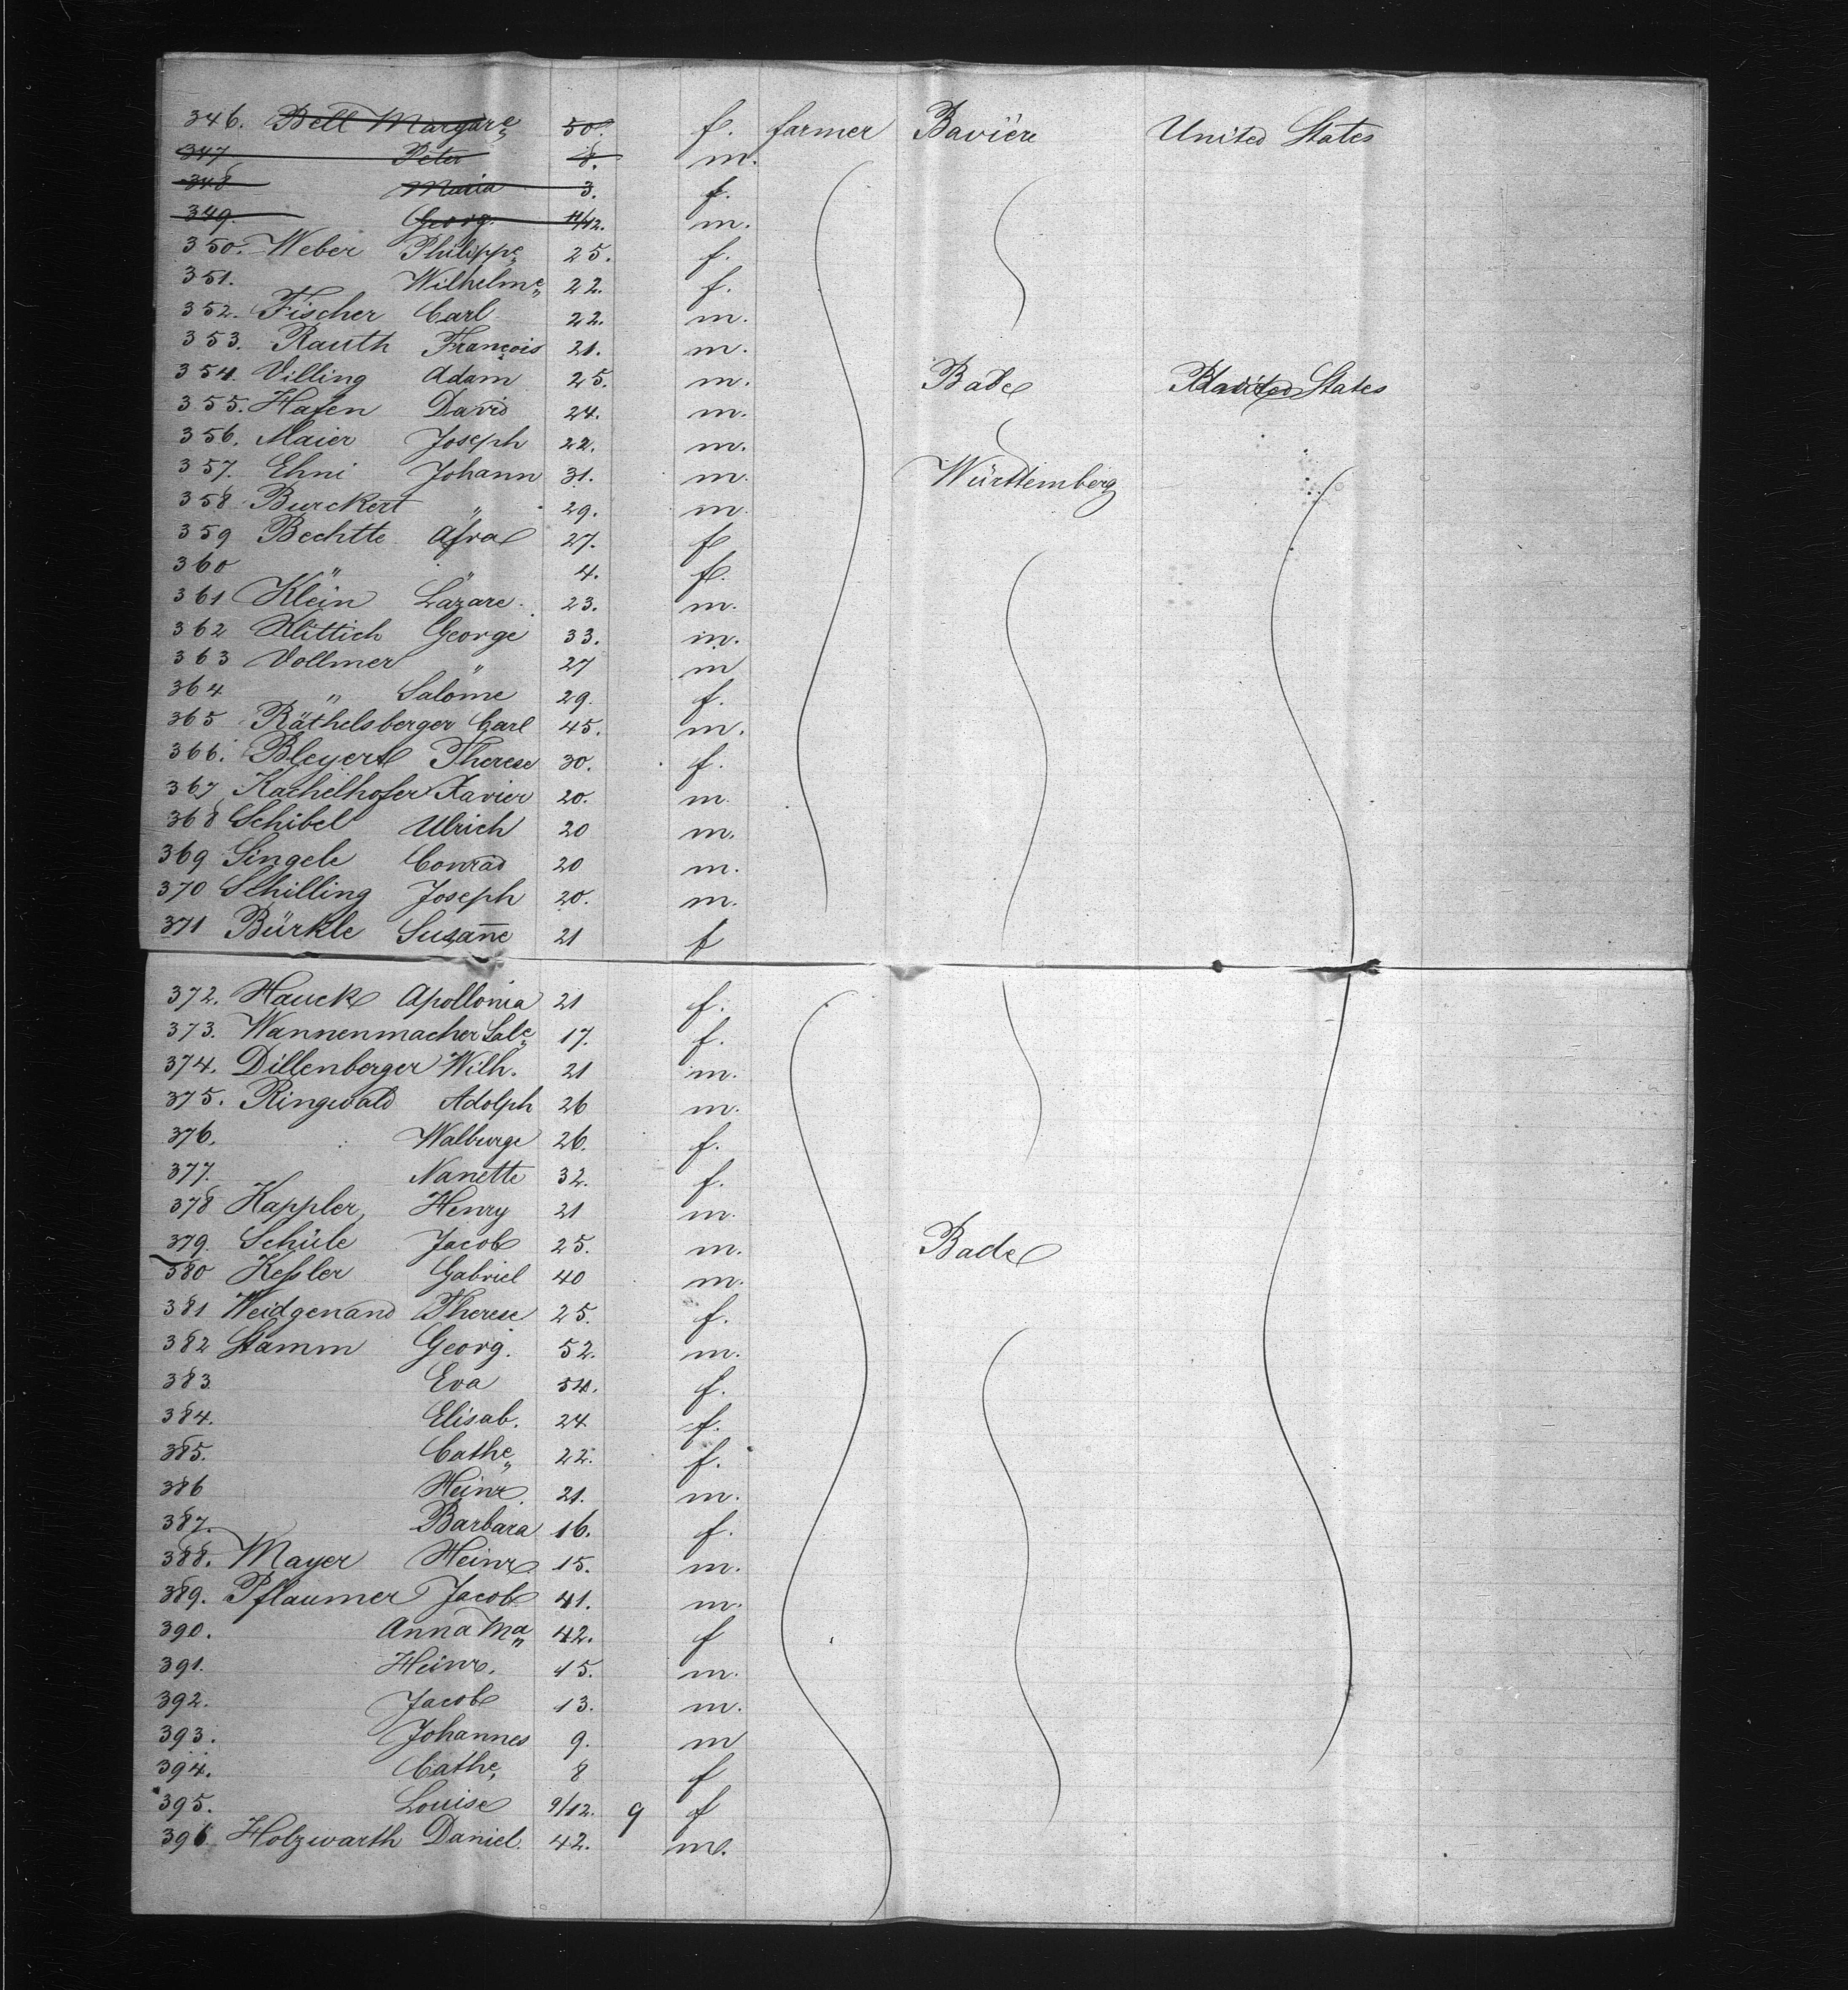 346. Bell Margare 50. f. farmer Bavière United States
347 Peter 8. m.
348 Maria 3. f.
349. Georg. 11/12. m.
350. Weber Philippe 25. f.
351. Wilhelme 22. f.
352. Fischer Carl 22. m.
353. Rauth François 21. m.
354. Villing Adam 25. m. Bade United States
355. Hafen David 24. m.
356. Maier Joseph 22. m.
357. Ehni Johann 31. m. Württemberg
358 Burckert " 29. m.
359 Bechtte Afra 27. f
360 " " 4. f.
361 Klein Lazare. 23. m.
362 Klittich George 33. m.
363 Vollmer " 27 m
364 " Salome 29. f.
365 Räthelsberger Carl 45. m.
366. Bleyert Therese 30. f.
367 Kachelhofer Xavier 20. m.
368 Schibel Ulrich 20 m.
369 Singele Conrad 20 m.
370 Schilling Joseph 20. m.
371 Bürkle Suzanne 21 f
372. Hauck Apollonia 21 f.
373. Wannenmacher Sale 17. f.
374. Dillenberger Wilh. 21 m.
375. Ringwald Adolph 26 m.
376. Walburge 26. f.
377. Nanette 32. f.
378 Kappler, Henry 21 m.
379. Schüle Jacob 25. m. Bade
380 Keßler Gabriel 40 m.
381 Weidgenand Therese 25. f.
382 Stamm Georg. 52. m.
383 Eva 54. f.
384. Elisab. 24 f.
385. Cathe 22. f.
386 Heinr. 21. m.
387. Barbara 16. f.
388. Mayer Heinr 15. m.
389. Pflaumer Jacob 41. m.
390. Anna Ma 42. f
391. Heinr. 15. m.
392. Jacob 13. m.
393. Johannes 9. m
394. Cathe 8 f
395. Louise 9/12. 9 f
396 Holzwarth Daniel. 42. m.